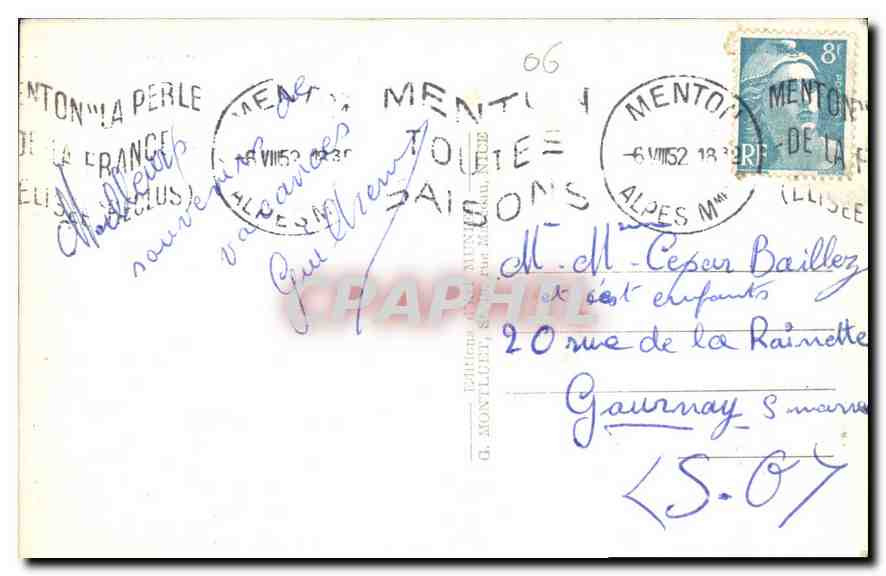 06
8F
RF
MENTON "LA PERLE
DE LA FRANCE
(ELISEE RECLUS)
MENTON
-6 VIII 52 18 30
ALPES Mmes
MENTON
TOUTES
SAISONS
MENTON
-6 VIII 52 18 30
ALPES Mmes
MENTON "
DE LA F
(ELISEE
Meilleurs
souvenirs de
vacances
CPAPHIL
Editions
G. MONTLUET, NICE
M. Mme Cepar Baillez
et enfants
20 rue de la Rainette
Gournay s marne
(S.O)